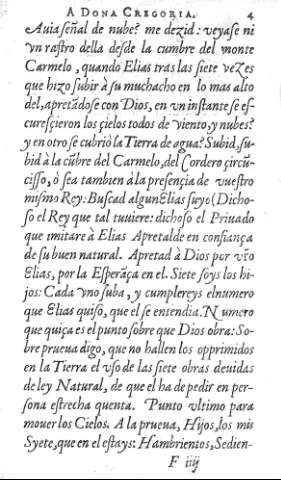 A DONA GREGORIA. 4
Auia señal de nube? me dezid: veyase ni
vn rastro della desde la cumbre del monte
Carmelo, quando Elias tras las siete vezes
que hizo subir à su muchacho en lo mas alto
del, apretãdose con Dios, en vn instante se es-
curesçieron los çielos todos de viento, y nubes?
y en otro se cubriò la Tierra de agua? Subid, su-
bid à la cũbre del Carmelo, del Cordero çircũ-
cisso, ò sea tambien à la presençia de vuestro
mismo Rey: Buscad algun Elias suyo (Dicho-
so el Rey que tal tuuiere: dichoso el Priuado
que imitàre à Elias Apretalde en confiança
de su buen natural. Apretad à Dios por vr̃o
Elias, por la Esperãça en el. Siete soys los hi-
jos: Cada vno suba, y cumplereys el numero
que Elias quiso, que el se entendia. Numero
que quiça es el punto sobre que Dios obra: So-
bre prueua digo, que no hallen los opprimidos
en la Tierra el vso de las siete obras deuidas
de ley Natural, de que el ha de pedir en per-
sona estrecha quenta. Punto vltimo para
mouer los Cielos. A la prueua, Hijos, los mis
Syete, que en el estays: Hambrientos, Sedien-
F iiij